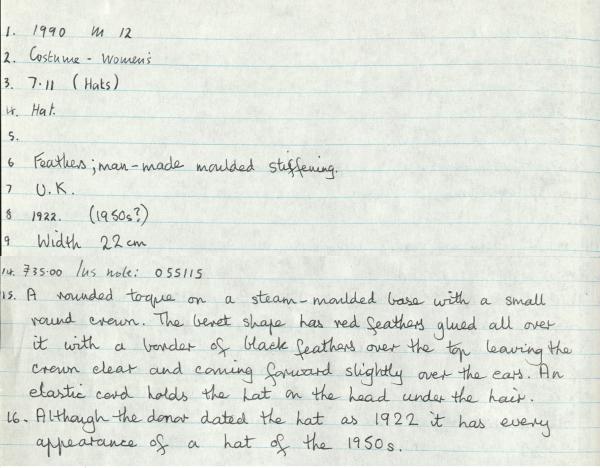 1. 1990 M 12
2. Costume - Women's
3. 7.11 (Hats)
4. Hat.
5.
6 Feathers; man-made moulded stiffening.
7 U.K.
8 1922. (1950s?)
9 Width 22cm
14. 735.00 /us note: 055115
15. A rounded toque on a steam-moulded base with a small
round crown. The beret shape has red feathers glued all over
it with a border of black feathers over the top leaving the
crown clear and coming forward slightly over the ears. An
elastic cord holds the hat on the head under the hair.
16. Although the donor dated the hat as 1922 it has every
appearance of a hat of the 1950s.